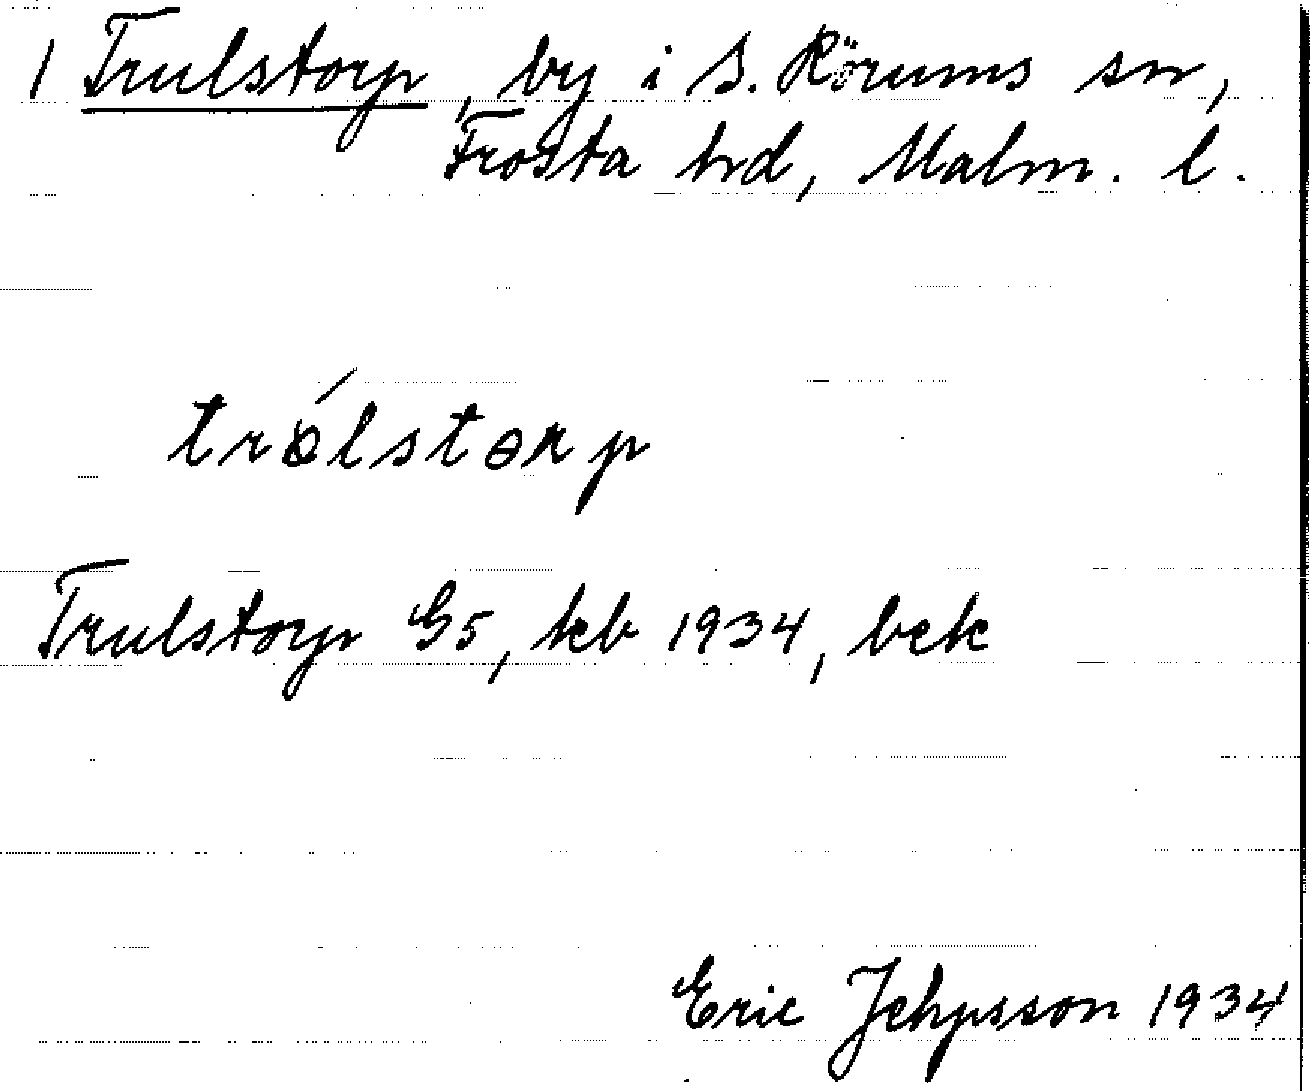 1 Trulstorp, by i S. Rörums sn,
Frosta hrd, Malm. l.
trólstɵrp
Trulstorp G5, kb 1934, bek
Eric Jehpsson 1934